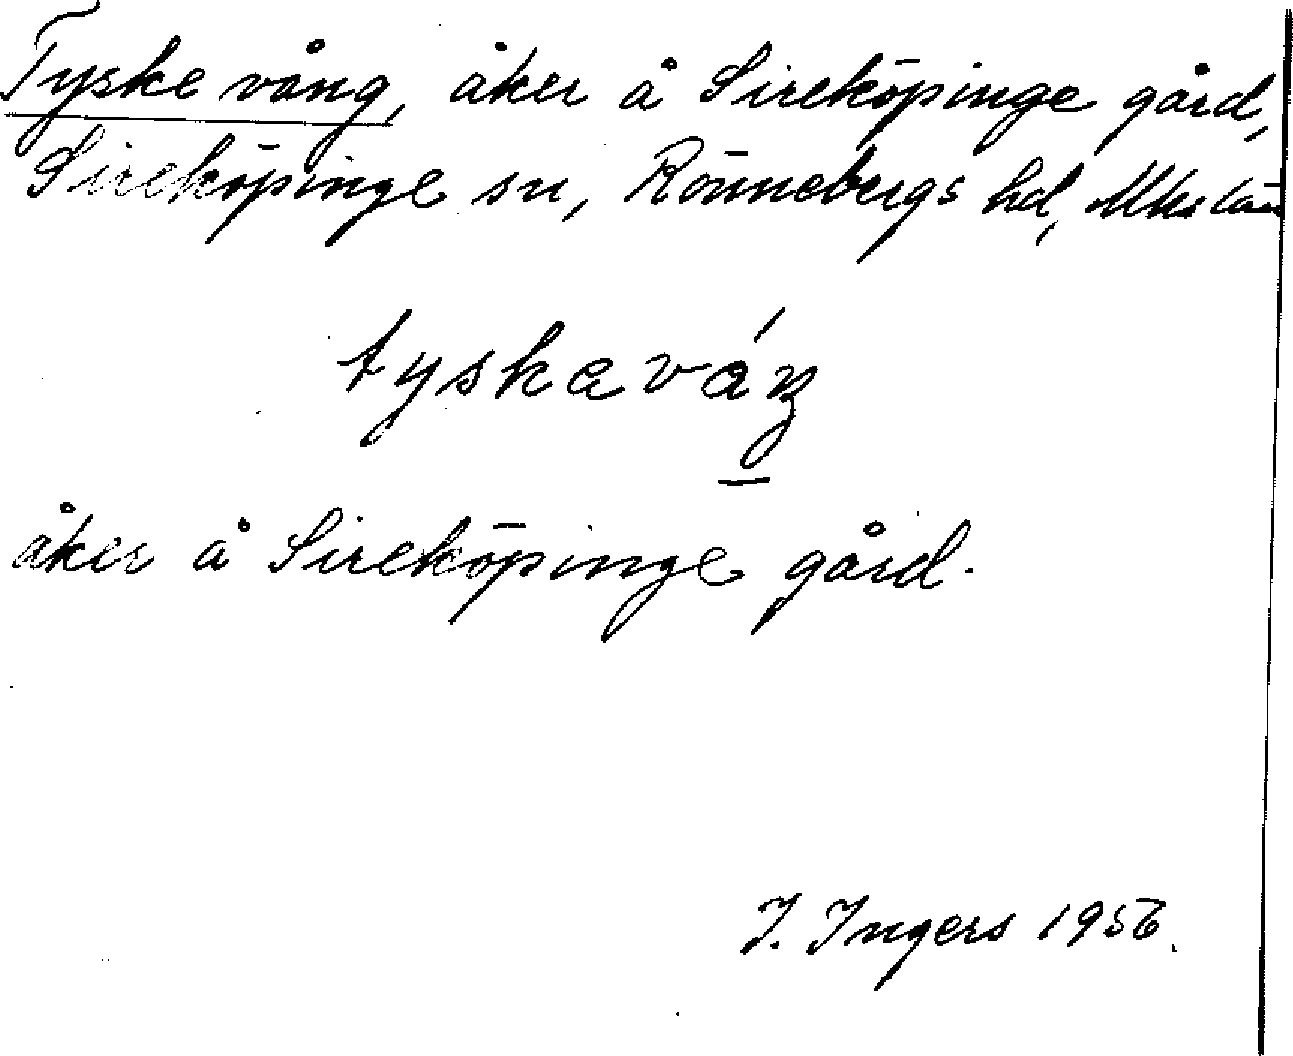 Tyske vång, åker å Sireköpinge gård,
Sireköpinge sn, Rönnebergs hd, Mhs län
tyskaváŋ
åker å Sireköpinge gård.
I. Ingers 1956.